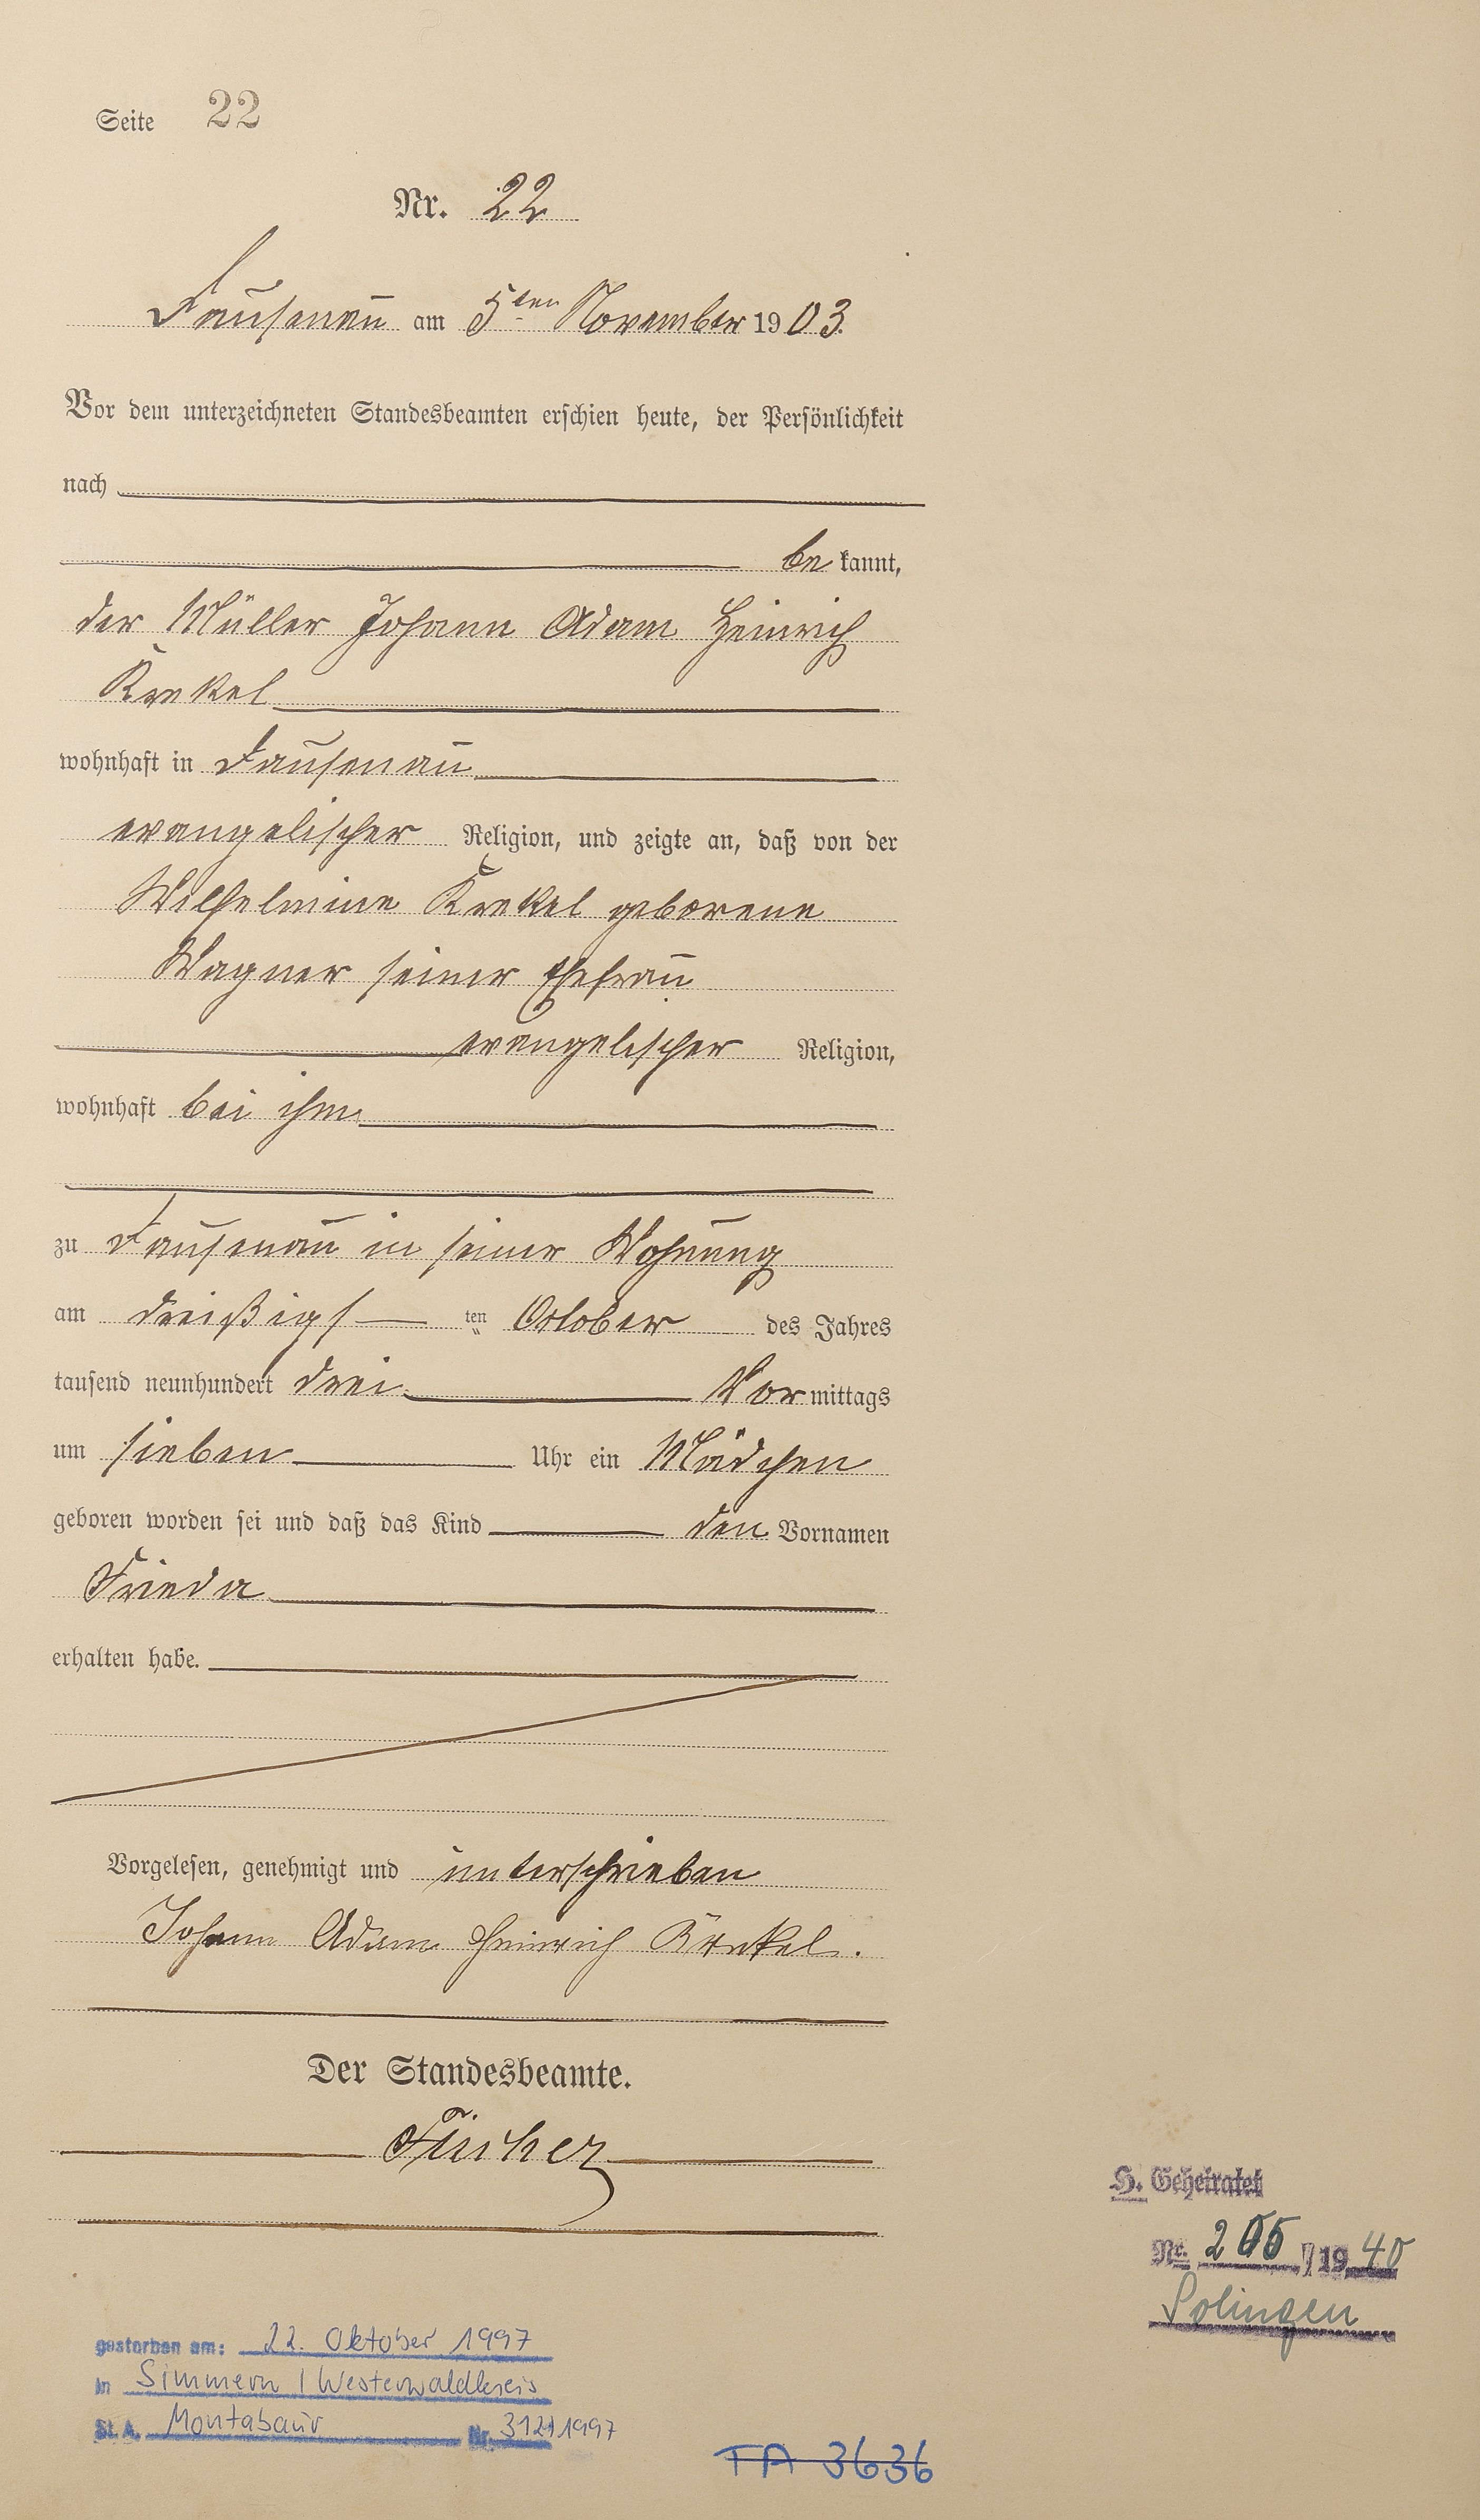 Seite 22
Nr. 22
Dausenau am 5ten November 1903.
Vor dem unterzeichneten Standesbeamten erschien heute, der Persönlichkeit
nach
be kannt,
der Müller Johann Adam Heinrich
Krekel
wohnhaft in Dausenau
evangelischer Religion, und zeigte an, daß von der
Wilhelmine Krekel geborene
Wagner seiner Ehefrau
evangelischer Religion,
wohnhaft bei ihm
zu Dausenau in seiner Wohnung
am dreißigsten October des Jahres
tausend neunhundert drei Vormittags
um sieben Uhr ein Mädchen
geboren worden sei und daß das Kind den Vornamen
Frieda
erhalten habe.
Vorgelesen, genehmigt und unterschrieben
Johann Adam Heinrich Krekel.
Der Standesbeamte.
H. Geheiratet
Nr. /1940
Solingen
gestorben am: 22. Oktober 1997
in Simmern / Westerwaldkreis
St. A. Montabaur Nr. 312/1997
TA 3636